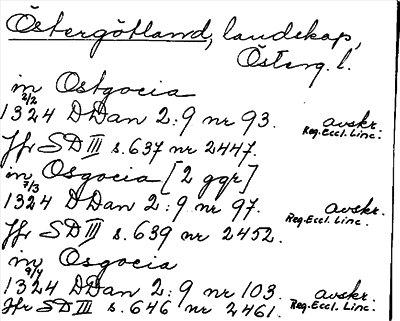 Östergötland, landskap,
Österg. l.
in Ostgocia
1324 2/2 DDan 2:9 nr 93. avskr.
Reg. Eccl. Linc.
Jfr SD III s. 637 nr 2447.
in Osgocia [2 ggr]
1324 7/3 DDan 2:9 nr 97. avskr.
Reg. Eccl. Linc.
Jfr SD III s. 639 nr 2452.
in Osgocia
1324 9/4 DDan 2:9 nr 103. avskr.
Reg. Eccl. Linc.
Jfr SD III s. 646 nr 2461.